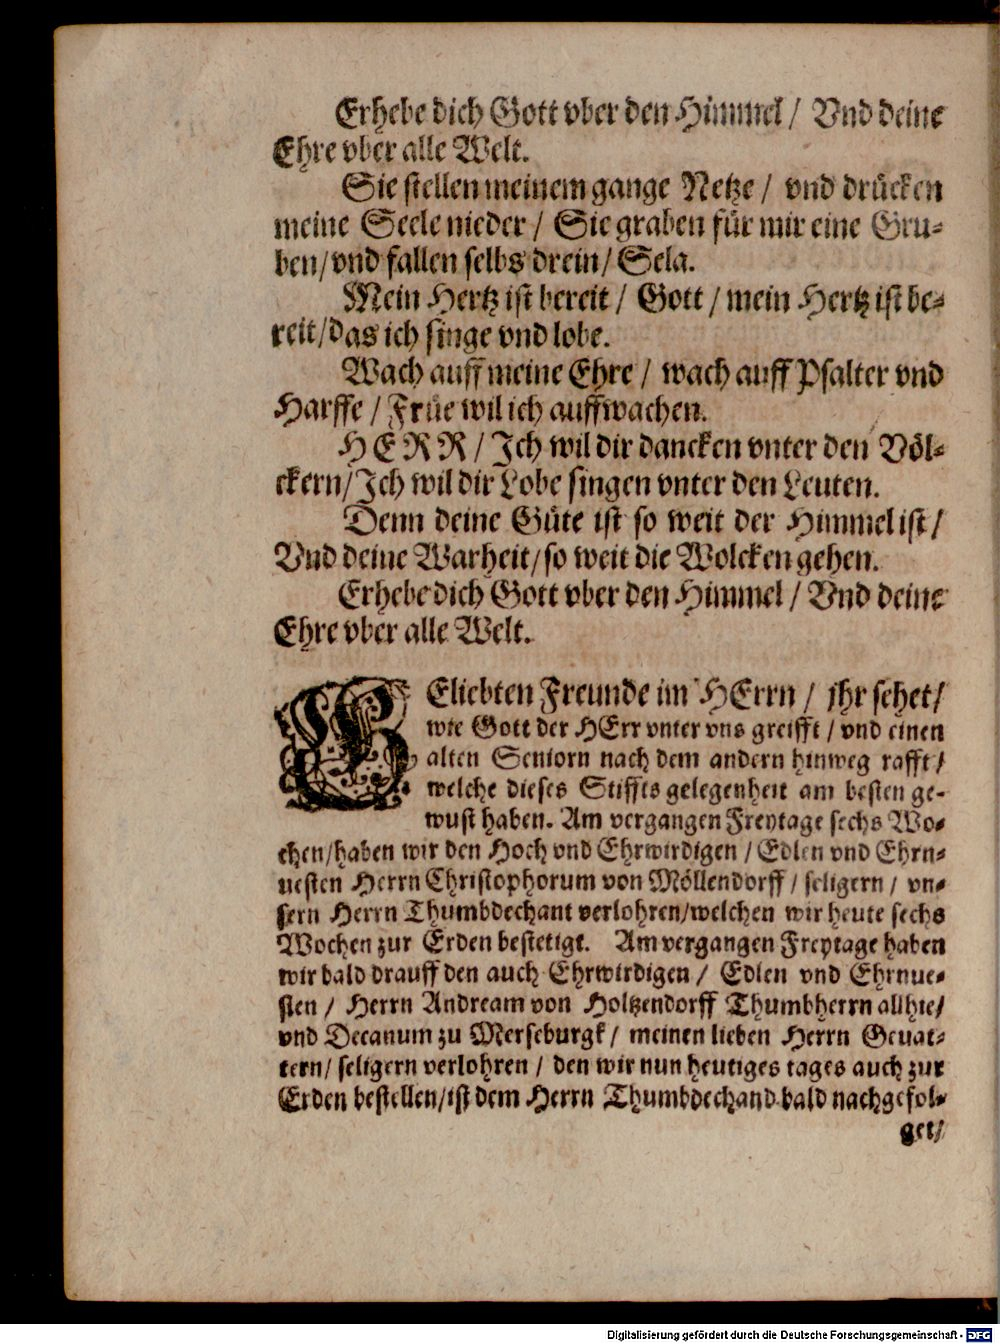 Erhebe dich Gott vber den Himmel / Vnd deine
Ehre vber alle Welt.
Sie stellen meinem gange Netze / vnd drücken
meine Seele nieder / Sie graben für mir eine Gru-
ben/ vnd fallen selbs drein/ Sela.
Mein Hertz ist bereit / Gott / mein Hertz ist be-
reit/ das ich singe vnd lobe.
Wach auff meine Ehre / wach auff Psalter vnd
Harffe / Früe wil ich auffwachen.
HERR / Ich wil dir dancken vnter den Völ-
ckern/ Ich wil dir Lobe singen vnter den Leuten.
Denn deine Güte ist so weit der Himmel ist /
Vnd deine Warheit/ so weit die Wolcken gehen.
Erhebe dich Gott vber den Himmel / Vnd deine
Ehre vber alle Welt.
GEliebten Freunde im HErrn / jhr sehet/
wie Gott der HErr vnter vns greifft / vnd einen
alten Seniorn nach dem andern hinweg rafft /
welche dieses Stiffts gelegenheit am besten ge-
wust haben. Am vergangen Freytage sechs Wo-
chen/ haben wir den Hoch vnd Ehrwirdigen / Edlen vnd Ehrn-
uesten Herrn Christophorum von Möllendorff / seligern / vn-
sern Herrn Thumbdechant verlohren/ welchen wir heute sechs
Wochen zur Erden bestetigt. Am vergangen Freytage haben
wir bald drauff den auch Ehrwirdigen / Edlen vnd Ehrnue-
sten / Herrn Andream von Holtzendorff Thumbherrn allhie/
vnd Decanum zu Merseburgk / meinen lieben Herrn Geuat-
tern/ seligern verlohren / den wir nun heutiges tages auch zur
Erden bestellen/ ist dem Herrn Thumbdechand bald nachgefol-
get/
Digitalisierung gefördert durch die Deutsche Forschungsgemeinschaft - DFG